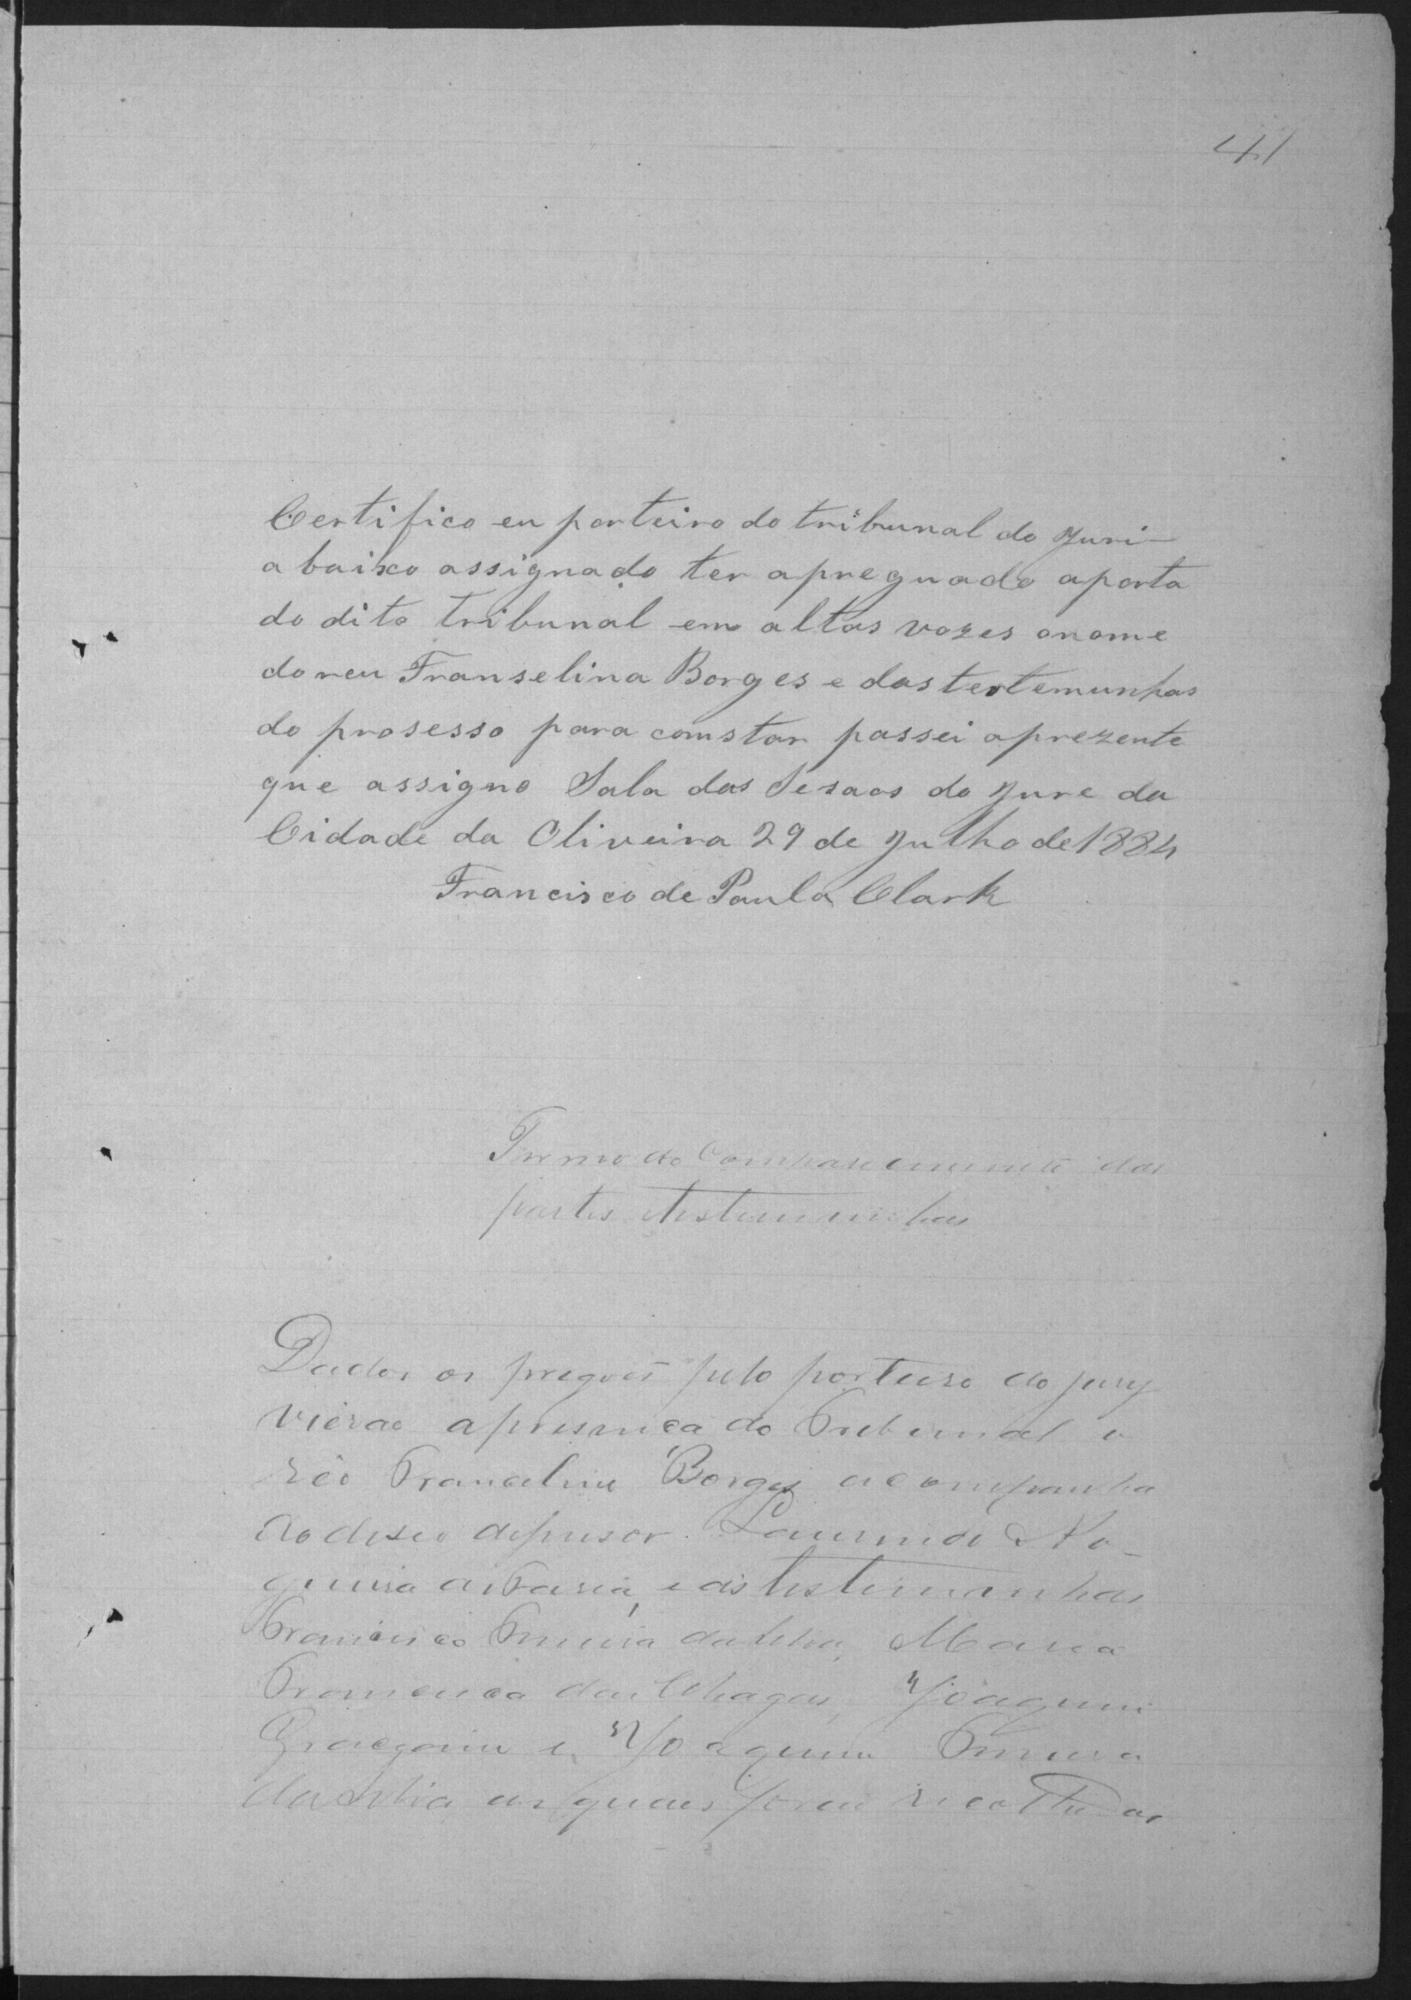 41
Certifico eu porteiro do tribunal do Juri
abaixo assignado ter apreguado aporta
do dito tribunal em altas vozes onome
do reu Franselina Borges e das testemunhas
do prosesso para comstar passei aprezente
que assigno Sala das Sesaos do Jure da
Cidade da Oliveira 29 de Julho de 1884
Francisco de Paula Clark
Termo de Comparecimento das
partes etestemunhas
Dados os pregões pelo porteiro do jury
vierão a presença do Tribunal o
réo Francelino Borges acompanha
do deseo defensor Lourindo No-
gueira de Faria, e as testemunhas
Francisco Ferreira da Silva, Maria
Francisca das Chagas, Joaquim
e Joaquim Ferreira
da Silva as quaes forão recolhidas